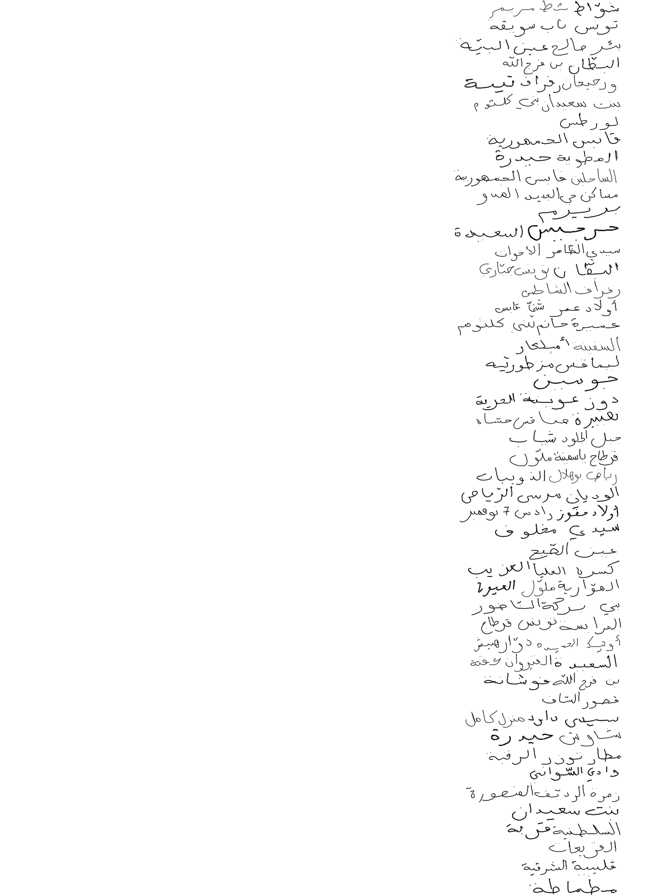 شوّاط شط مريم
تونس باب سويقة
بئر صالح عين البيّة
البطّان بن فرج الله
ودجبعان رفراف تيبة
بنت سعيدان بني كلثوم
لورطس
قابس الجمهورية
المطوية حيدرة
الساحلين قابس الجمهورية
مساكن حي العيد
جرجيس السعيدة
سيدي الظاهر الاخوات
البقّان تونس
رفراف الشاطئ
أولاد عمر
عميرة حاتم بني كلثوم
السفينة
ليماقس مزطورية
حوسين
دوز عوينة
صفاقس حشاد
جبل الجلود شباب
قرطاج ياسمينة ملّول
رياض بوهلال الذويبات
الوديان مرسى الرياض
أولاد معّوز رادس 7 نوفمبر
سيدي مخلوف
عين القيح
كسرة العليا العزيب
الهوّارية ملّول
بني بركة الناظور
المرايسة تونس قرطاج
أوتيك الجديدة دوّار هيشر
السعيدة القيروان عقبة
بن فرج الله فوشانة
قصور الساف
سيدي داود منزل كامل
ساوش حيدرة
مطار توزر الرقبة
وادي السّواني
زمرة الرديّف المنصورة
بنت سعيدان
السلطنية قربة
القريعات
قليبية الشرقية
مطماطة